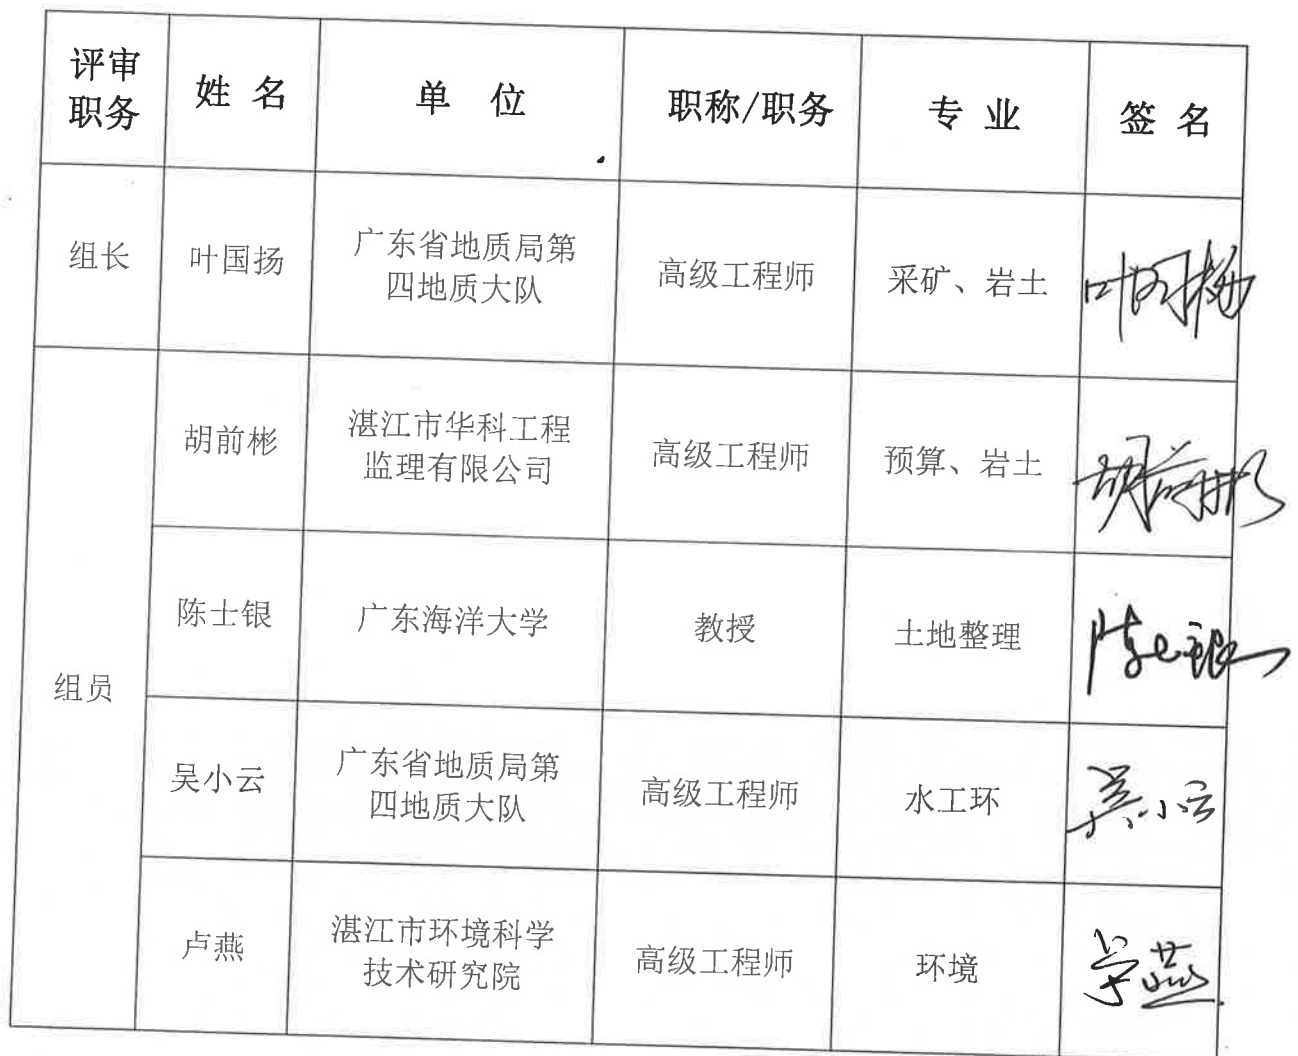 评审职务 姓名 单位 职称/职务 专业 签名
组长 叶国扬 广东省地质局第四地质大队 高级工程师 采矿、岩土 叶国扬
组员 胡前彬 湛江市华科工程监理有限公司 高级工程师 预算、岩土 胡前彬
陈士银 广东海洋大学 教授 土地整理 陈士银
吴小云 广东省地质局第四地质大队 高级工程师 水工环 吴小云
卢燕 湛江市环境科学技术研究院 高级工程师 环境 卢燕